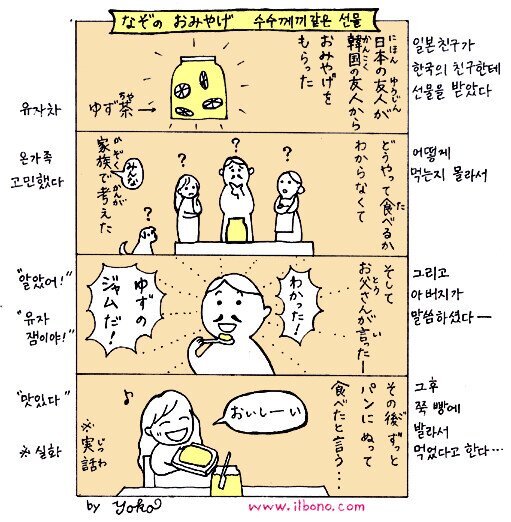 なぞの おみやげ 수수께끼같은 선물
日本の友人が
にほん ゆうじん
韓国の友人から
かんこく
おみやげを
もらった
ゆず茶→
ちゃ
일본친구가
한국의 친구한테
선물을 받았다
유자차
どうやって食べるか
た
わからなくて
みんな
家族で考えた
かぞく かんが
?
?
?
?
어떻게
먹는지 몰라서
온가족
고민했다
そして
お父さんが言ったー
とう い
わかった!
ゆずの
ジャムだ!
그리고
아버지가
말씀하셨다ー
"알았어!"
"유자
잼이야!"
その後ずっと
ご
パンにぬって
食べたと言う・・・
おいしーい
♪
※実話
じつわ
그후
쭉 빵에
발라서
먹었다고 한다…
"맛있다"
※실화
by Yoko
www.ilbono.com